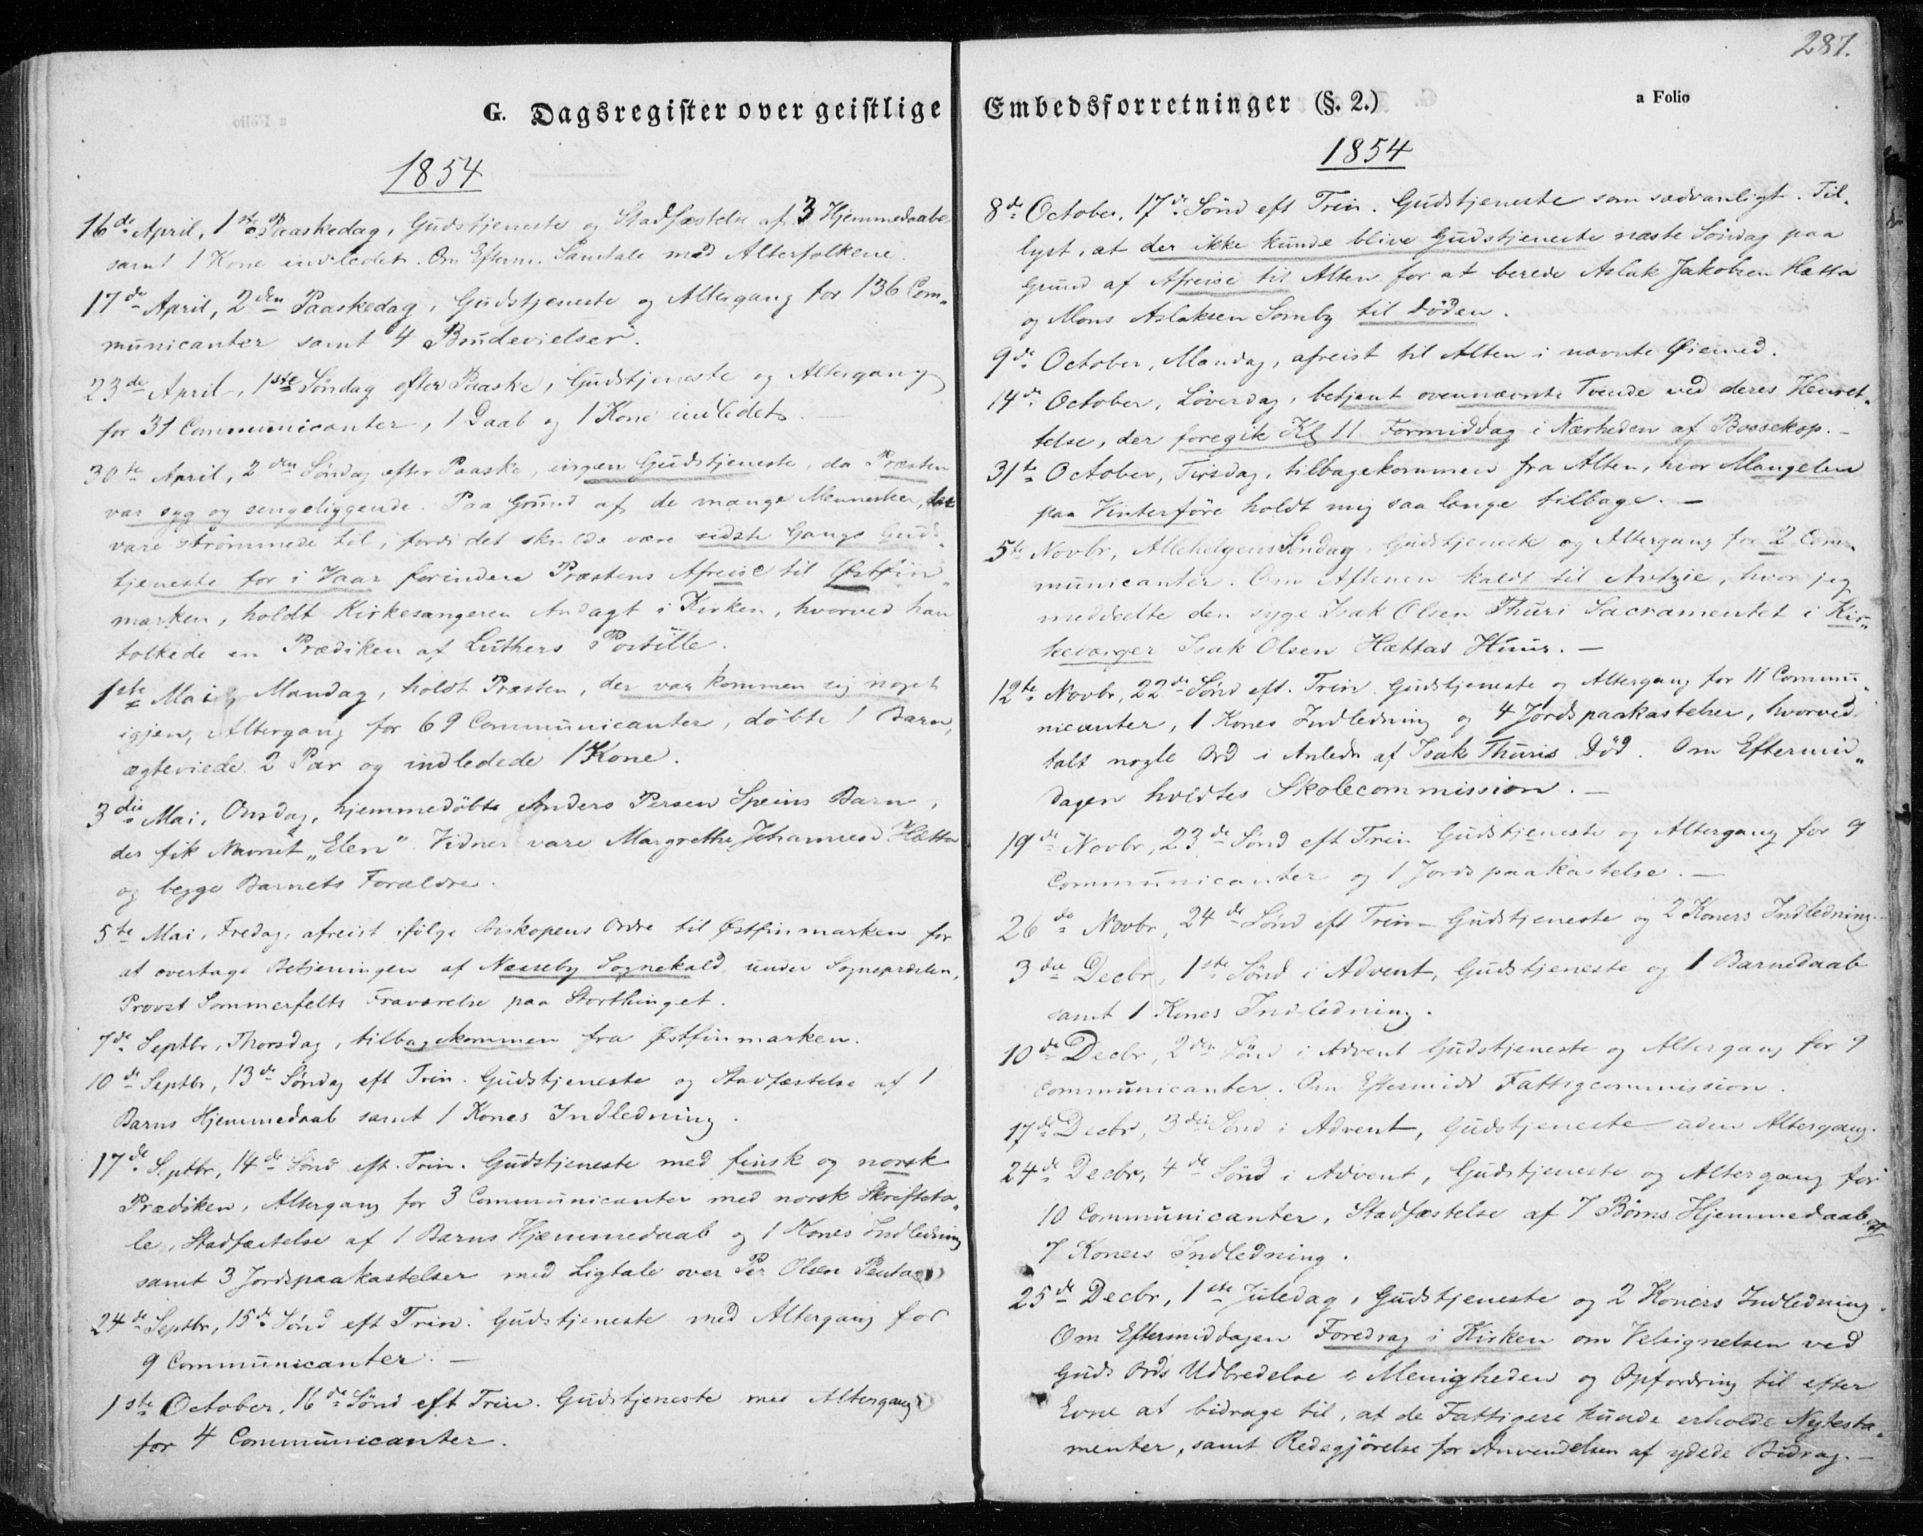 287.
G. Dagsregister over geistlige Embedsforretninger (§. 2.)
a Folio
1854
16de April, 1ste Paaskedag, Gudstjeneste og Stadfæstelse af 3 Hjemmedaabe
samt 1 Kone indledet. Om Efterm. Samtale med Alterfolkene.
17de April, 2den Paaskedag, Gudstjeneste og Altergang for 136 Com-
municanter samt 4 Brudevielser.
23de April, 1ste Søndag efter Paaske, Gudstjeneste og Altergang
for 31 Communicanter, 1 Daab og 1 Kone indledet.
30te April, 2den Søndag efter Paaske, ingen Gudstjeneste, da Præsten
var syg og sengeliggende. Paa Grund af de mange Mennesker, der
vare strømmede til, fordi det skulde være sidste Gangs Guds-
tjeneste for i Vaar forinden Præstens Afreise til Østfin-
marken, holdt Kirkesangeren Andagt i Kirken, hvorved han
tolkede en Prædiken af Luthers Postille.
1ste Mai, Mandag, holdt Præsten, der var kommen sig noget
igjen, Altergang for 69 Communicanter, døbte 1 Barn,
ægteviede 2 Par og indledede 1 Kone.
3die Mai, Onsdag, hjemmedøbte Anders Persen Speins Barn,
der fik Navnet „Elen". Vidner vare Margrethe Johannesd. Hætta
og begge Barnets Forældre.
5te Mai, Fredag, afreist ifølge Biskopens Ordre til Østfinmarken for
at overtage Betjeningen af Næsseby Sognekald under Sognepræsten,
Provst Sommerfelts Fraværelse paa Storthinget.
7de Septbr, Thorsdag, tilbagekommen fra Østfinmarken.
10de Septbr, 13de Søndag eft Trin. Gudstjeneste og Stadfæstelse af 1
Barns Hjemmedaab samt 1 Kones Indledning.
17de Septbr, 14de Sønd eft. Trin. Gudstjeneste med finsk og norsk
Prædiken, Altergang for 3 Communicanter med norsk Skrifteta-
le, Stadfæstelse af 1 Barns Hjemmedaab og 1 Kones Indledning
samt 3 Jordspaakastelser med Ligtale over Per Olsen
24de Septbr, 15de Sønd eft Trin. Gudstjeneste med Altergang for
9 Communicanter. —
1ste October, 16de Sønd eft Trin. Gudstjeneste med Altergang
for 4 Communicanter.
1854
8de October, 17de Sønd eft Trin. Gudstjeneste som sædvanligt. Til-
lyst, at der ikke kunde blive Gudstjeneste næste Søndag paa
Grund af Afreise til Alten for at berede Aslak Jakobsen Hætta
og Mons Aslaksen Somby til Døden.
9de October, Mandag, afreist til Alten i nævnte Øiemed.
14de October, Løverdag, betjent ovennævnte Tvende ved deres Henret-
telse, der foregik Kl 11 Formiddag i Nærheden af Bossekop. —
31te October, Tirsdag, tilbagekommen fra Alten, hvor Mangelen
paa Vinterføre holdt mig saa længe tilbage. —
5te Novbr, Allehelgens Søndag, Gudstjeneste og Altergang for 2 Com-
municanter. Om Aftenen kaldt til Avtzie, hvor jeg
meddeelte den syge Isak Olsen Thuri Sacramentet i Kir-
keværger Isak Olsen Hættas Huus. —
12te Novbr, 22de Sønd eft. Trin. Gudstjeneste og Altergang for 11 Commu-
nicanter, 1 Kones Indledning og 4 Jordspaakastelser, hvorved
talt nogle Ord i Anledn af Isak Thuris Død. Om Eftermid-
dagen holdtes Skolecommission. —
19de Novbr, 23de Sønd eft Trin Gudstjeneste og Altergang for 9
Communicanter og 1 Jordspaakastelse. —
26de Novbr, 24de Sønd eft Trin — Gudstjeneste og 2 Koners Indledning.
3die Decbr, 1ste Sønd i Advent, Gudstjeneste og 1 Barnedaab
samt 1 Kones Indledning.
10de Decbr, 2den Sønd i Advent Gudstjeneste og Altergang for 9
Communicanter. Om Eftermidd Fattigcommission.
17de Decbr, 3die Sønd i Advent, Gudstjeneste uden Altergang.
24de Decbr, 4de Sønd i Advent, Gudstjeneste og Altergang for
10 Communicanter, Stadfæstelse af 7 Børns Hjemmedaab og
7 Koners Indledning.
25de Decbr, 1ste Juledag, Gudstjeneste og 2 Koners Indledning.
Om Eftermiddagen Foredrag i Kirken om Velsignelsen ved
Guds Ords Udbredelse i Menigheden og Opfordring til efter
Evne at bidrage til, at de Fattigere kunde erholde Nytesta-
menter, samt Redegjørelse for Anvendelsen af ydede Bidrag. —